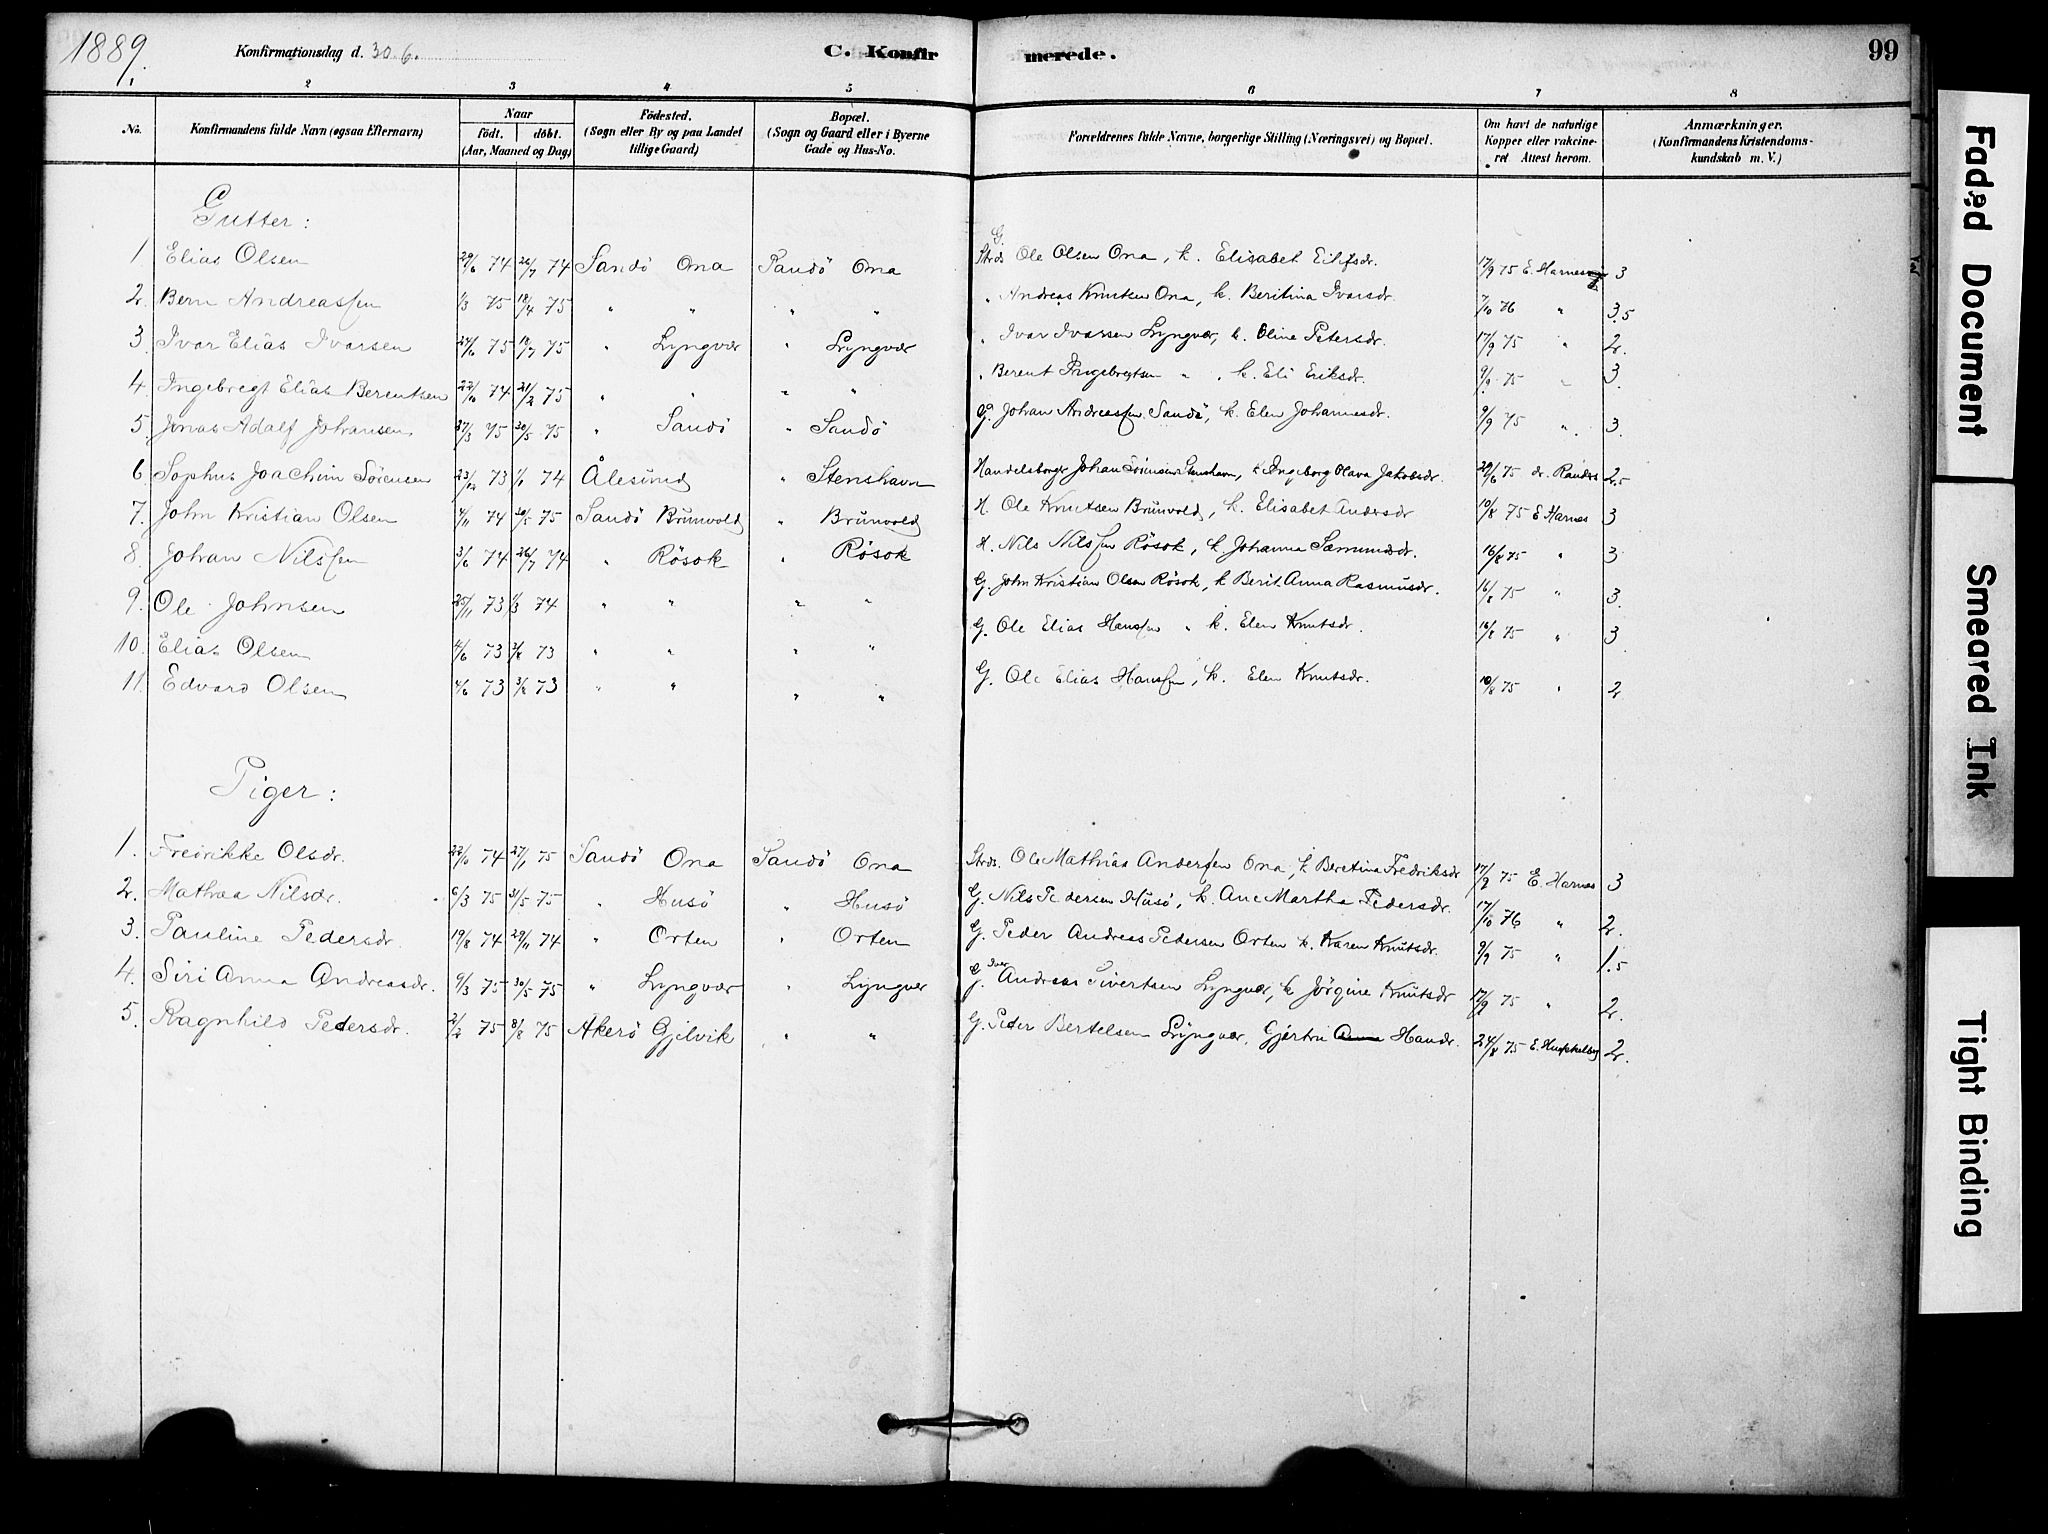 1889. Konfirmationsdag d. 30.6. C. Konfirmerede. 99
1 2 3 4 5 6 7 8
No. Konfirmandens fulde Navn (ogsaa Efternavn) Naar födt. döbt. (Aar, Maaned og Dag) Födested. (Sogn eller By og paa Landet tillige Gaard) Bopæl. (Sogn og Gaard eller i Byerne Gade og Hus-No. Forældrenes fulde Navne, borgerlige Stilling (Næringsvei) og Bopæl. Om havt de naturlige Kopper eller vakcineret Attest herom. Anmærkninger. (Konfirmandens Kristendomskundskab m. V.)
Gutter:
1 Elias Olsen 29/6 74 26/7 74 Sandö Ona Sandö Ona G. Strds Ole Olsen Ona, k. Elisabet Eilifsdr. 17/9 75 E. Harnes 3
2. Bern Andreassen 1/3 75 18/4 75 " " " " " Andreas Knutsen Ona, k. Beritina Ivarsdr. 7/10 76 " 3.5
3. Ivar Elias Ivarsen 24/6 75 18/7 75 " Lyngvær " Lyngvær " Ivar Ivarsen Lyngvær, k. Oline Petersdr. 17/9 75 " 2.
4. Ingebregt Elias Berentsen 22/10 74 21/2 75 " " " " " Berent Ingebregtsen " , k. Eli Eriksdr. 9/9 75 " 3.
5. Jonas Adolf Johansen 27/3 75 30/5 75 " Sandö " Sandö G. Johan Andreassen Sandö, k. Elen Johannesdr. 9/9 75 " 3.
6 Sophus Joachim Sörensen 23/12 73 1/1 74 Ålesund " Stenshavn Handelsborger Johan Sörensen Stenshavn, k Ingeborg Olava Jakobsdr. 29/6 75 dr. Randers 2.5
7. John Kristian Olsen 4/11 74 30/5 75 Sandö Brunvold " Brunvold H. Ole Knutsen Brunvold, k. Elisabet Andersdr 10/8 75 E Harnes 3
8. Johan Nilssen 3/6 74 26/7 74 " Rösok " Rösok H. Nils Nilssen Rösok, k Johanna Sammuesdr. 16/8 75 " 3
9. Ole Johnsen 25/11 73 1/3 74 " " " " G. John Kristian Olsen Rösok, k Berit Anna Rasmusdr. 16/8 75 " 3.
10. Elias Olsen 4/6 73 3/8 73 " " " " G. Ole Elias Hanssen " k. Elen Knutsdr. 16/8 75 " 3
11. Edvard Olsen 4/6 73 3/8 73 " " " " G. Ole Elias Hanssen, k. Elen Knutsdr. 10/8 75 " 2
Piger:
1. Fredrikke Olsdr. 22/10 74 27/1 75 Sandö Ona Sandö Ona Strds. Ole Mathias Andersen Ona, k Beretina Fredriksdr 17/9 75 E. Harnes 3
2. Mathea Nilsdr. 6/3 75 31/5 75 " Husö " Husö G. Nils Pedersen Husö, k. Ane Martha Pedersdr. 17/10 76 " 2.
3. Pauline Pedersdr. 19/8 74 29/11 74 " Orten " Orten G. Peder Andreas Pedersen Orten k. Karen Knutsdr. 9/9 75 " 1.5
4. Siri Anna Andreasdr. 9/3 75 30/5 75 " Lyngvær " Lyngvær G. Iver Andreas Sivertsen Lyngvær, k Jörgine Knutsdr 17/9 75 " 2.
5. Ragnhild Pedersdr. 2/2 75 8/8 75 Akerö Gjelvik " " G. Peder Bertelsen Lyngvær, Gjertru Anna Hansdr. 24/8 75 2.
Faded Document
Smeared Ink
Tight Binding